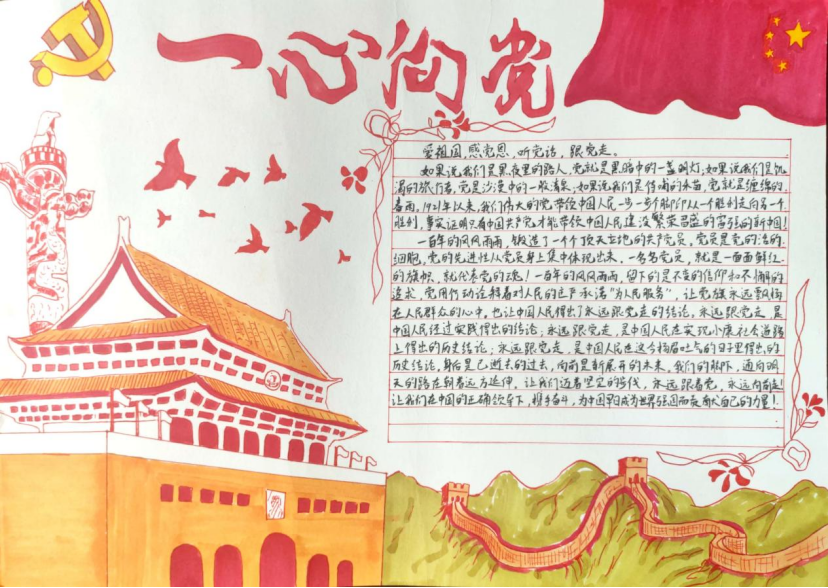 一心向党
爱祖国,感党恩,听党话,跟党走。
如果说我们是黑夜里的路人,党就是黑暗中的一盏明灯;如果说我们是饥
渴的旅行者,党是沙漠中的一股清泉;如果说我们是待哺的禾苗,党就是缠绵的
春雨,1921年以来,我们伟大的党,带领中国人民一步一步个脚印从一个胜利走向另一个
胜利,事实证明只有中国共产党才能带领中国人民建设繁荣昌盛的富强的新中国!
一百年的风风雨雨,锻造了一个个顶天立地的共产党员,党员是党的活的
细胞,党的先进性从党员身上集中体现出来,一名名党员,就是一面面鲜红
的旗帜,就代表党的魂!一百年的风风雨雨,留下的是不变的信仰和不懈的
追求,党用行动诠释着对人民的庄严承诺"为人民服务",让党旗永远飘扬
在人民群众的心中,也让中国人民得出了永远跟党走的结论,永远跟党走,是
中国人民经过实践得出的结论;永远跟党走,是中国人民在实现小康社会道路
上得出的历史结论;永远跟党走,是中国人民在这个扬眉吐气的日子里得出的
历史结论,身后是已逝去的过去,向前是新展开的未来,我们的脚下,通向明
天的路在朝着远方延伸,让我们迈着坚定的步伐,永远跟着党,永远向前走!
让我们在中国的正确领导下,携手奋斗,为中国早日成为世界强国而贡献自己的力量!